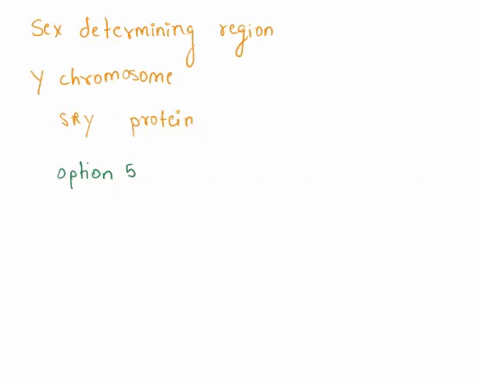 Sex determining region
Y chromosome
SRY protein
option 5